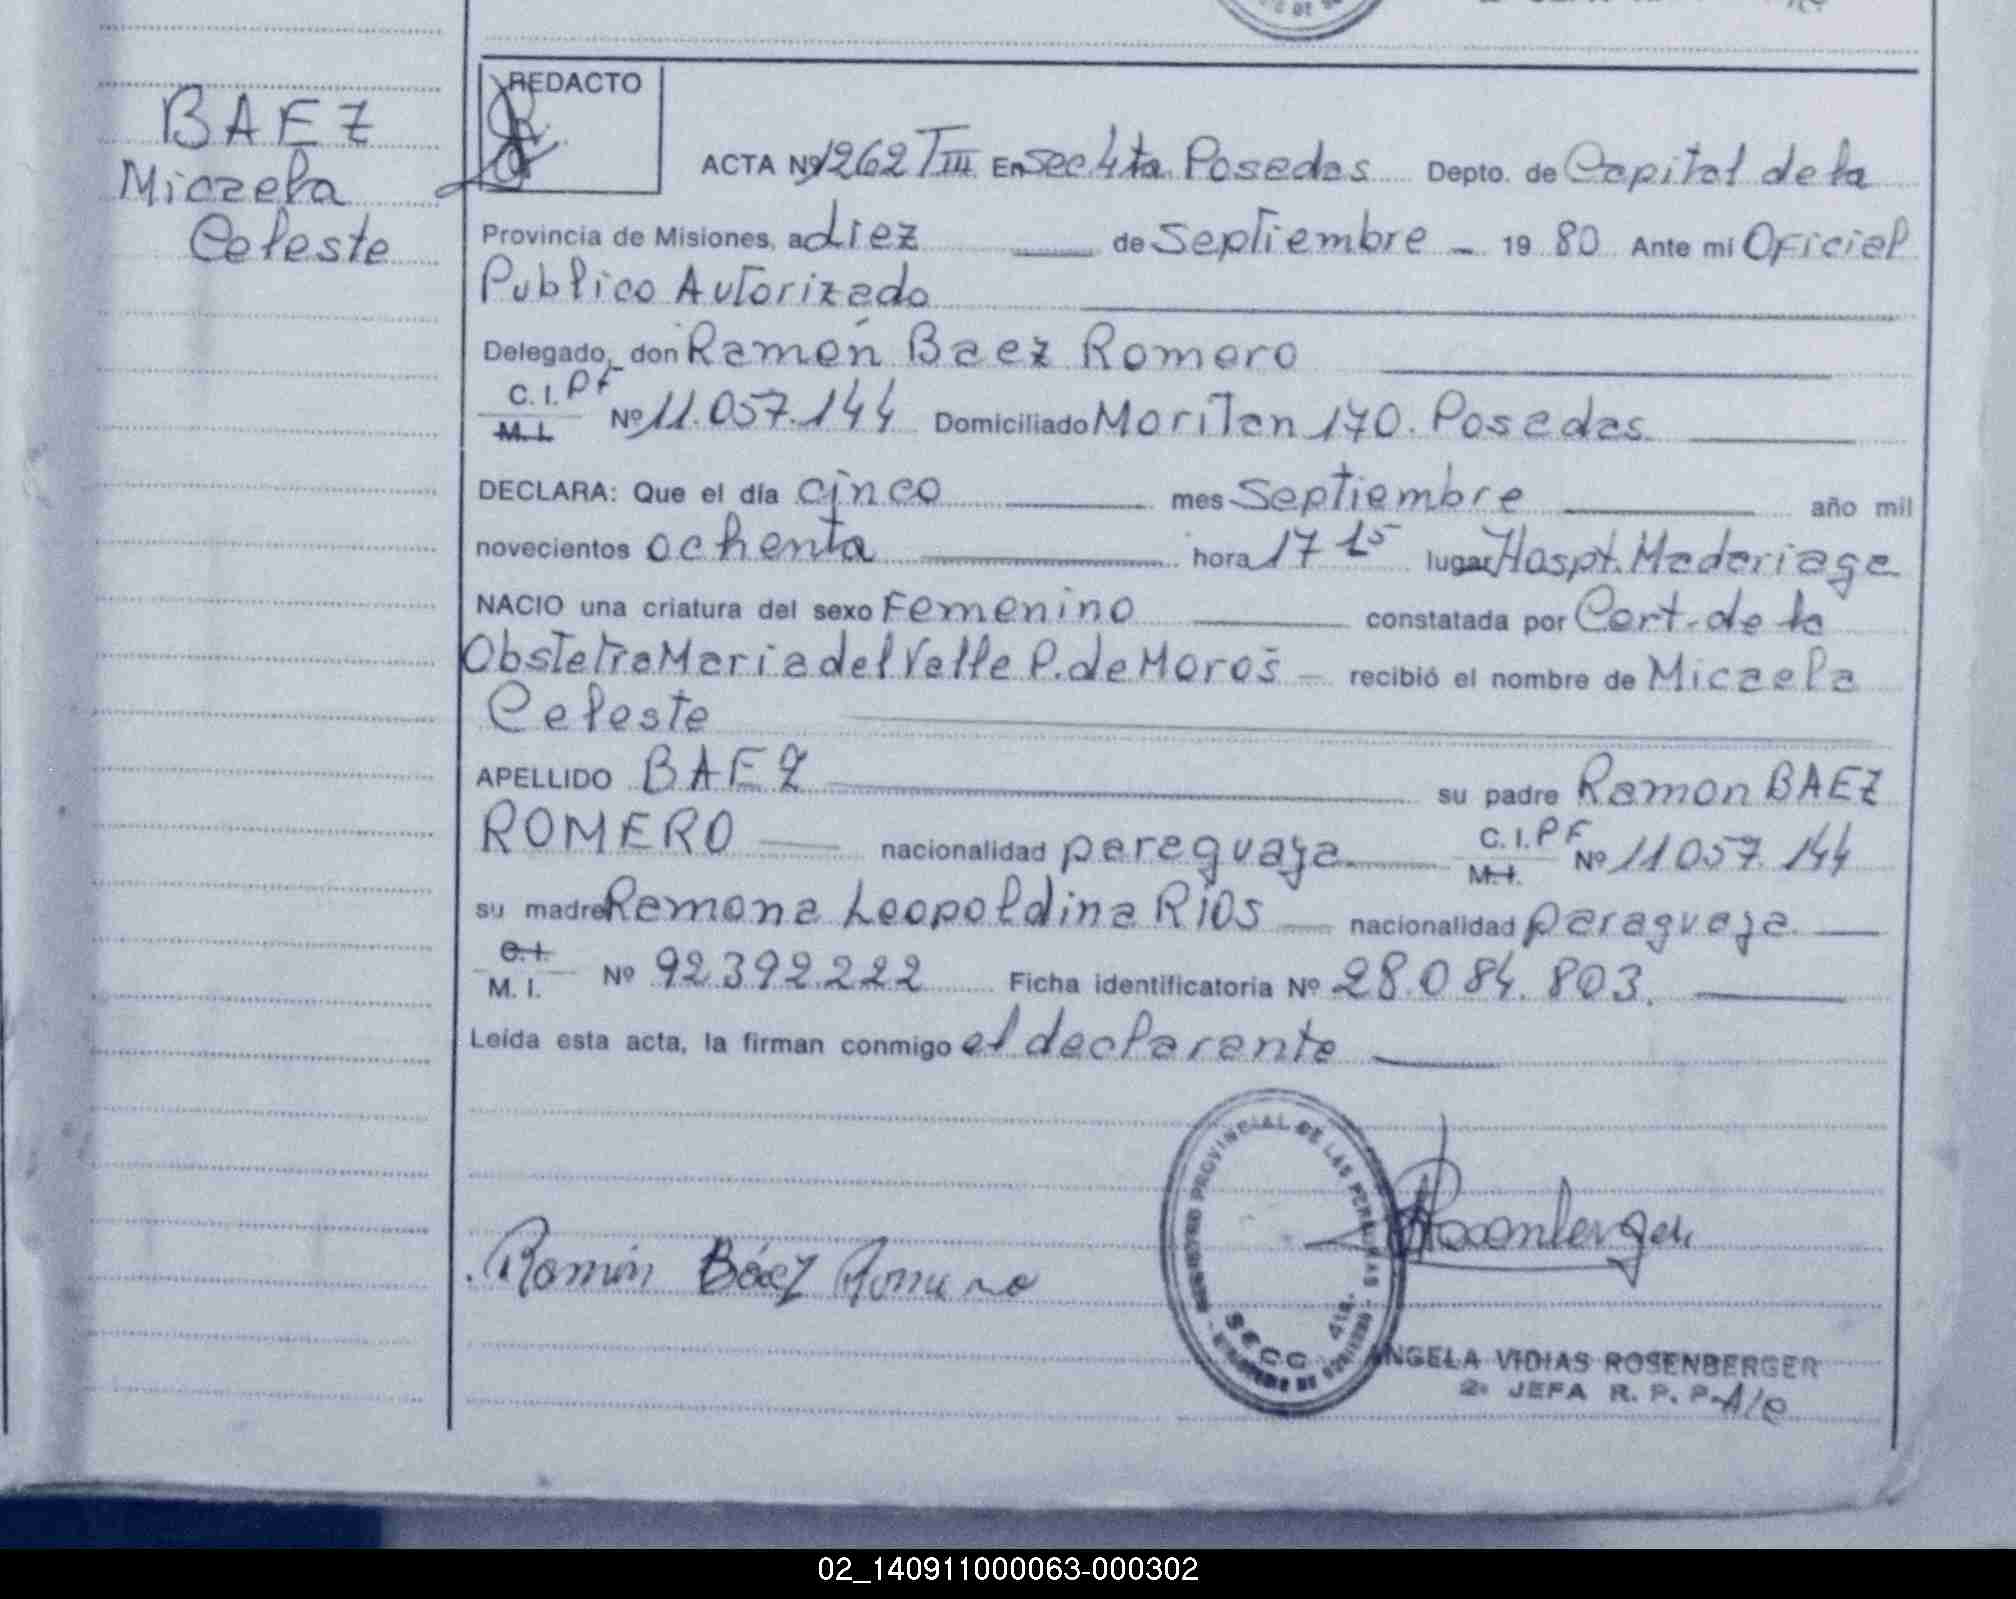 BAEZ
Micaela
Celeste
REDACTO
ACTA Nº 1262 TIII En Sec 4ta. Posadas Depto. de Capital de la
Provincia de Misiones, a diez de Septiembre - 19 80 Ante mi Oficial
Publico Autorizado
Delegado, don Ramón Baez Romero
C. I. P F
M. I. Nº 11.057.144 Domiciliado Moritan 170. Posadas
DECLARA: Que el día cinco mes Septiembre año mil
novecientos ochenta hora 17 15 lugar Hospt. Madariaga
NACIO una criatura del sexo Femenino constatada por Cert. de la
Obstetra Maria del Valle P. de Moros - recibió el nombre de Micaela
Celeste
APELLIDO BAEZ su padre Ramon BAEZ
ROMERO nacionalidad paraguaya C. I. P F
M. I. Nº 11 057. 144
su madre Ramona Leopoldina Rios nacionalidad paraguaya.
C. I.
M. I. Nº 92.392.222 Ficha identificatoria Nº 28.084.803.
Leída esta acta, la firman conmigo el declarante
Ramón Báez Romero
Rosenberger
REGISTRO PROVINCIAL DE LAS PERSONAS
SECC. 4ta.
ANGELA VIDIAS ROSENBERGER
2ª JEFA R. P. P. A/c
02_140911000063-000302